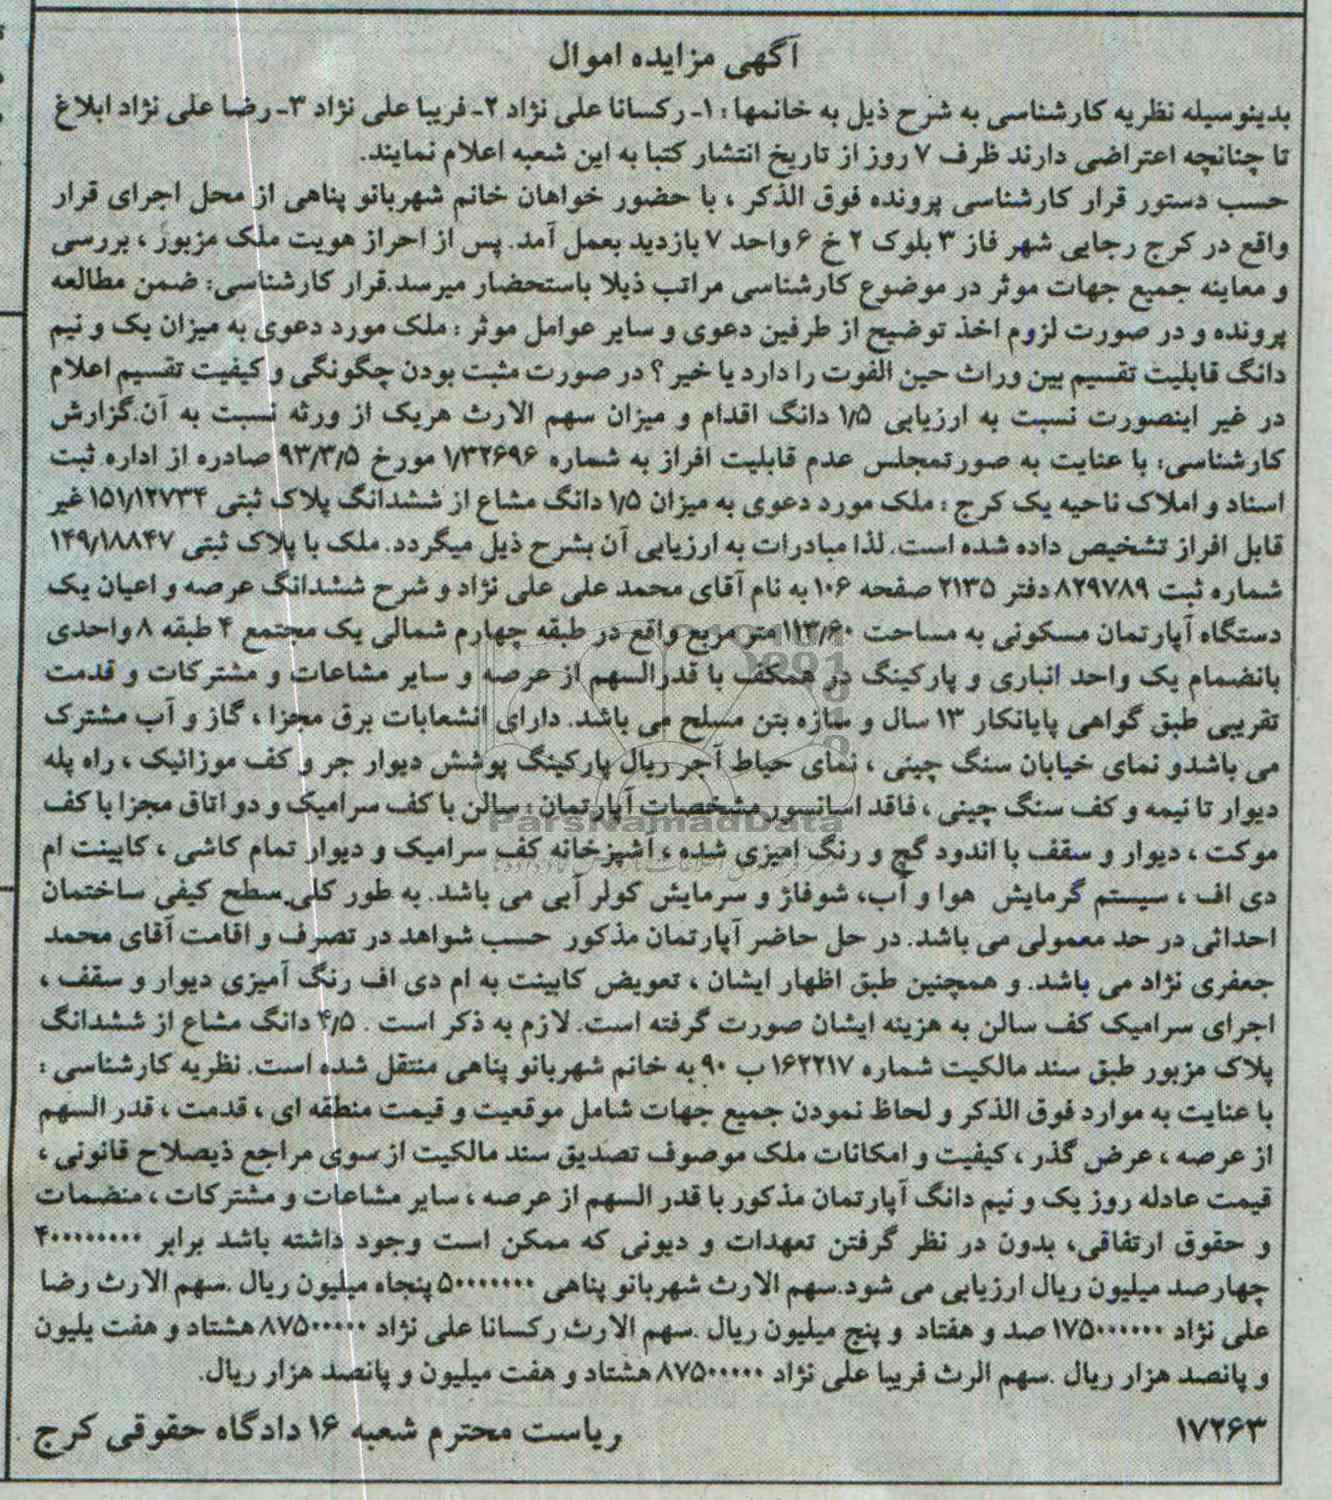 آگهی مزایده اموال
بدینوسیله نظریه کارشناسی به شرح ذیل به خانمها : ۱- رکسانا علی نژاد ۲- فریبا علی نژاد ۳- رضا علی نژاد ابلاغ
تا چنانچه اعتراضی دارند ظرف ۷ روز از تاریخ انتشار کتبا به این شعبه اعلام نمایند.
حسب دستور قرار کارشناسی پرونده فوق الذکر ، با حضور خواهان خانم شهربانو پناهی از محل اجرای قرار
واقع در کرج رجایی شهر فاز ۳ بلوک ۲ خ ۶ واحد ۷ بازدید بعمل آمد. پس از احراز هویت ملک مزبور ، بررسی
و معاینه جمیع جهات موثر در موضوع کارشناسی مراتب ذیلا باستحضار میرسد.قرار کارشناسی: ضمن مطالعه
پرونده و در صورت لزوم اخذ توضیح از طرفین دعوی و سایر عوامل موثر : ملک مورد دعوی به میزان یک و نیم
دانگ قابلیت تقسیم بین وراث حین الفوت را دارد یا خیر ؟ در صورت مثبت بودن چگونگی و کیفیت تقسیم اعلام
در غیر اینصورت نسبت به ارزیابی ۱/۵ دانگ اقدام و میزان سهم الارث هریک از ورثه نسبت به آن.گزارش
کارشناسی: با عنایت به صورتمجلس عدم قابلیت افراز به شماره ۱/۳۲۶۹۶ مورخ ۹۳/۳/۵ صادره از اداره ثبت
اسناد و املاک ناحیه یک کرج : ملک مورد دعوی به میزان ۱/۵ دانگ مشاع از ششدانگ پلاک ثبتی ۱۵۱/۱۲۷۳۴ غیر
قابل افراز تشخیص داده شده است. لذا مبادرات به ارزیابی آن بشرح ذیل میگردد. ملک با پلاک ثبتی ۱۴۹/۱۸۸۴۷
شماره ثبت ۸۲۹۷۸۹ دفتر ۲۱۳۵ صفحه ۱۰۶ به نام آقای محمد علی علی نژاد و شرح ششدانگ عرصه و اعیان یک
دستگاه آپارتمان مسکونی به مساحت ۱۱۳/۶۰ متر مربع واقع در طبقه چهارم شمالی یک مجتمع ۴ طبقه ۸ واحدی
بانضمام یک واحد انباری و پارکینگ در همکف با قدرالسهم از عرصه و سایر مشاعات و مشترکات و قدمت
تقریبی طبق گواهی پایانکار ۱۳ سال و سازه بتن مسلح می باشد. دارای انشعابات برق مجزا ، گاز و آب مشترک
می باشدو نمای خیابان سنگ چینی ، نمای حیاط آجر ریال پارکینگ پوشش دیوار جر و کف موزائیک ، راه پله
دیوار تا نیمه و کف سنگ چینی ، فاقد اسانسور مشخصات آپارتمان : سالن با کف سرامیک و دو اتاق مجزا با کف
موکت ، دیوار و سقف با اندود گچ و رنگ امیزی شده ، آشپزخانه کف سرامیک و دیوار تمام کاشی ، کابینت ام
دی اف ، سیستم گرمایش هوا و آب، شوفاژ و سرمایش کولر آبی می باشد. به طور کلی سطح کیفی ساختمان
احداثی در حد معمولی می باشد. در حل حاضر آپارتمان مذکور حسب شواهد در تصرف و اقامت آقای محمد
جعفری نژاد می باشد. و همچنین طبق اظهار ایشان ، تعویض کابینت به ام دی اف رنگ آمیزی دیوار و سقف ،
اجرای سرامیک کف سالن به هزینه ایشان صورت گرفته است. لازم به ذکر است . ۴/۵ دانگ مشاع از ششدانگ
پلاک مزبور طبق سند مالکیت شماره ۱۶۲۲۱۷ ب ۹۰ به خانم شهربانو پناهی منتقل شده است. نظریه کارشناسی :
با عنایت به موارد فوق الذکر و لحاظ نمودن جمیع جهات شامل موقعیت و قیمت منطقه ای ، قدمت ، قدر السهم
از عرصه ، عرض گذر ، کیفیت و امکانات ملک موصوف تصدیق سند مالکیت از سوی مراجع ذیصلاح قانونی ،
قیمت عادله روز یک و نیم دانگ آپارتمان مذکور با قدر السهم از عرصه ، سایر مشاعات و مشترکات ، منضمات
و حقوق ارتفاقی، بدون در نظر گرفتن تعهدات و دیونی که ممکن است وجود داشته باشد برابر ۴۰۰۰۰۰۰۰۰
چهارصد میلیون ریال ارزیابی می شود.سهم الارث شهربانو پناهی ۵۰۰۰۰۰۰۰ پنجاه میلیون ریال .سهم الارث رضا
علی نژاد ۱۷۵۰۰۰۰۰۰ صد و هفتاد و پنج میلیون ریال .سهم الارث رکسانا علی نژاد ۸۷۵۰۰۰۰۰ هشتاد و هفت یلیون
و پانصد هزار ریال .سهم الرث فریبا علی نژاد ۸۷۵۰۰۰۰۰ هشتاد و هفت میلیون و پانصد هزار ریال.
۱۷۲۶۳ ریاست محترم شعبه ۱۶ دادگاه حقوقی کرج
ParsNamadData